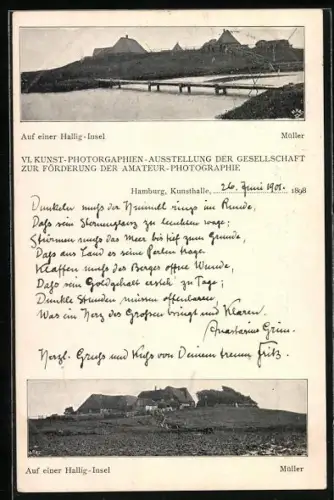 Auf einer Hallig-Insel
Müller
VI. KUNST-PHOTORGAPHIEN-AUSSTELLUNG DER GESELLSCHAFT
ZUR FÖRDERUNG DER AMATEUR-PHOTOGRAPHIE
Hamburg, Kunsthalle, 26. Juni 1901. 1898
Dunkeln muß der Himmel rings im Runde,
Daß sein Sternenglanz zu leuchten wage;
Stürmen muß das Meer bis tief zum Grunde,
Daß ans Land es seine Perlen trage.
Klaffen muß des Berges offne Wunde,
Daß sein Goldgehalt ersteh zu Tage;
Dunkle Stunden müssen offenbaren,
Was ein Herz des Großen birgt und Klaren.
Anastasius Grün.
Herzl. Gruß und Kuß von Deinem treuen Fritz.
Auf einer Hallig-Insel
Müller